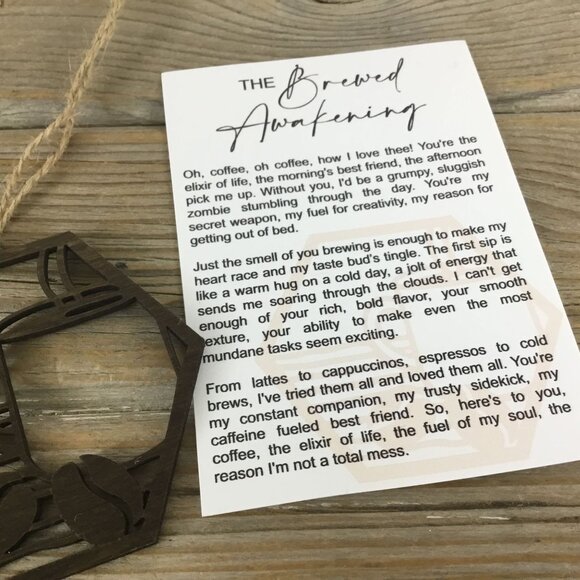 THE Brewed
Awakening
Oh, coffee, oh coffee, how I love thee! You're the
elixir of life, the morning's best friend, the afternoon
pick me up. Without you, I'd be a grumpy, sluggish
zombie stumbling through the day. You're my
secret weapon, my fuel for creativity, my reason for
getting out of bed.
Just the smell of you brewing is enough to make my
heart race and my taste bud's tingle. The first sip is
like a warm hug on a cold day, a jolt of energy that
sends me soaring through the clouds. I can't get
enough of your rich, bold flavor, your smooth
exture, your ability to make even the most
mundane tasks seem exciting.
From lattes to cappuccinos, espressos to cold
brews, I've tried them all and loved them all. You're
my constant companion, my trusty sidekick, my
caffeine fueled best friend. So, here's to you,
coffee, the elixir of life, the fuel of my soul, the
reason I'm not a total mess.